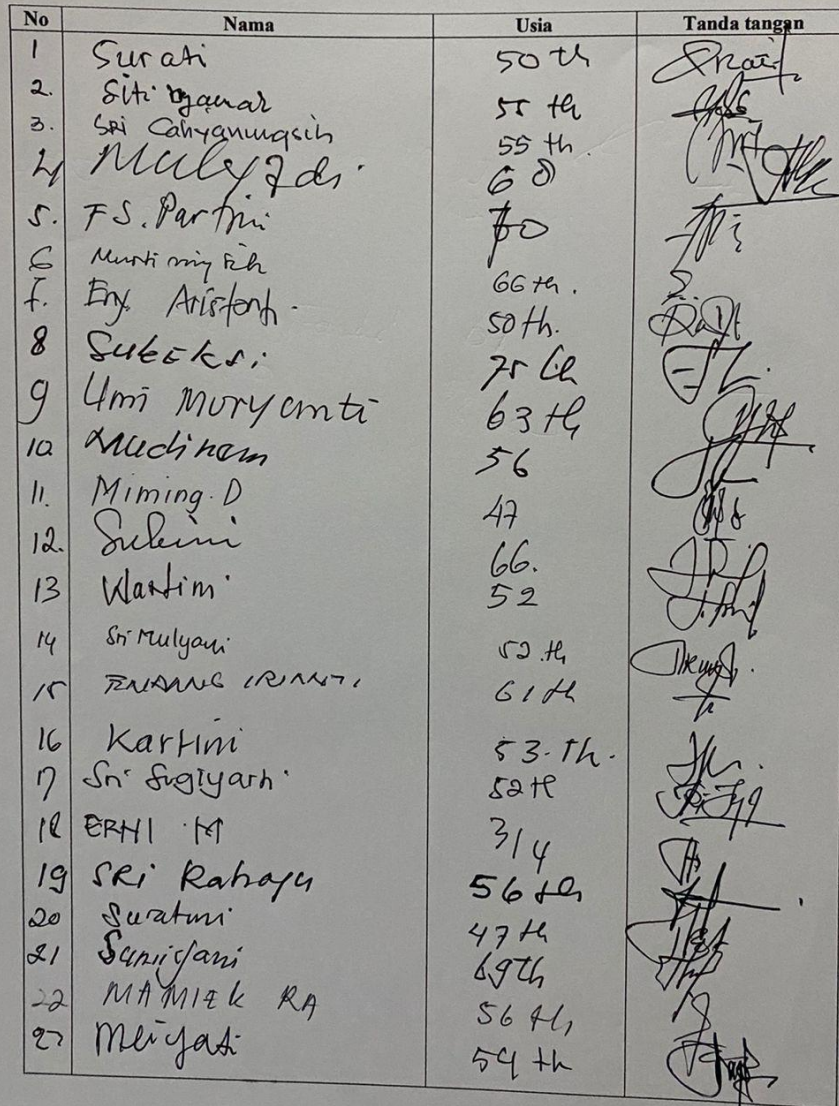 No Nama Usia Tanda tangan
1 Surati 50 th
2. Siti 55 th
3. SRi Cahyaningsih 55 th.
4 Mulyadi. 60
5. FS. Partini 70
6 Murtiningsih 66 th.
7. Eny Aristanti. 50 th.
8 Sukeksi 75 th
9 Umi Muryanti 63 th
10 Mudinem 56
11. Miming. D 47
12. Sukini 66.
13 Wartini 52
14 Sri Mulyani 52.th
15 61 th
16 Kartini 53. Th.
17 Sri Sugiyarti 52 th
18 ERHI M 3/4
19 SRi Rahayu 56 th
20 Suratmi 47 th
21 69 th
22 MAMIEK RA 56 th
23 Meiyati 54 th